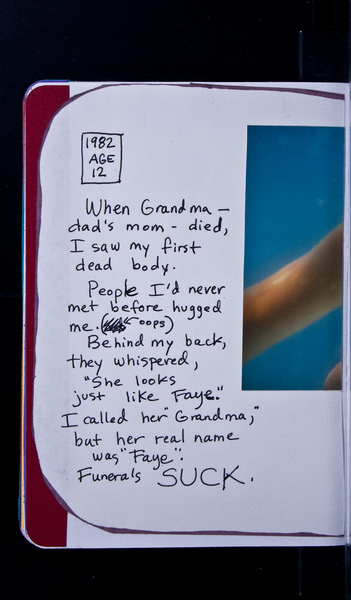 1982
AGE
12
When Grandma -
dad's mom - died,
I saw my first
dead body.
People I'd never
met before hugged
me. (← oops)
Behind my back,
they whispered,
"She looks
just like Faye."
I called her "Grandma,"
but her real name
was "Faye".
Funerals SUCK.